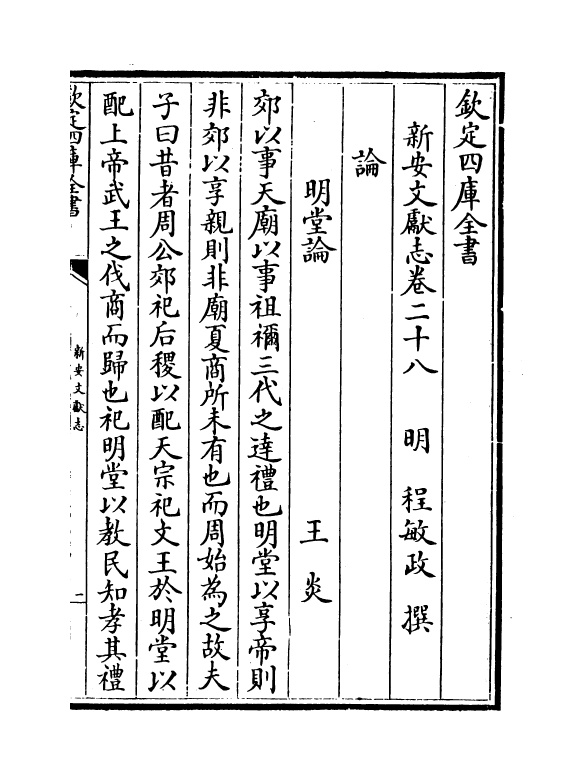 欽定四庫全書
新安文獻志卷二十八　明　程敏政　撰
論
明堂論　王炎
郊以事天廟以事祖禰三代之達禮也明堂以享帝則
非郊以享親則非廟夏商所未有也而周始為之故夫
子曰昔者周公郊祀后稷以配天宗祀文王於明堂以
配上帝武王之伐商而歸也祀明堂以教民知孝其禮
欽定四庫全書
新安文獻志
二